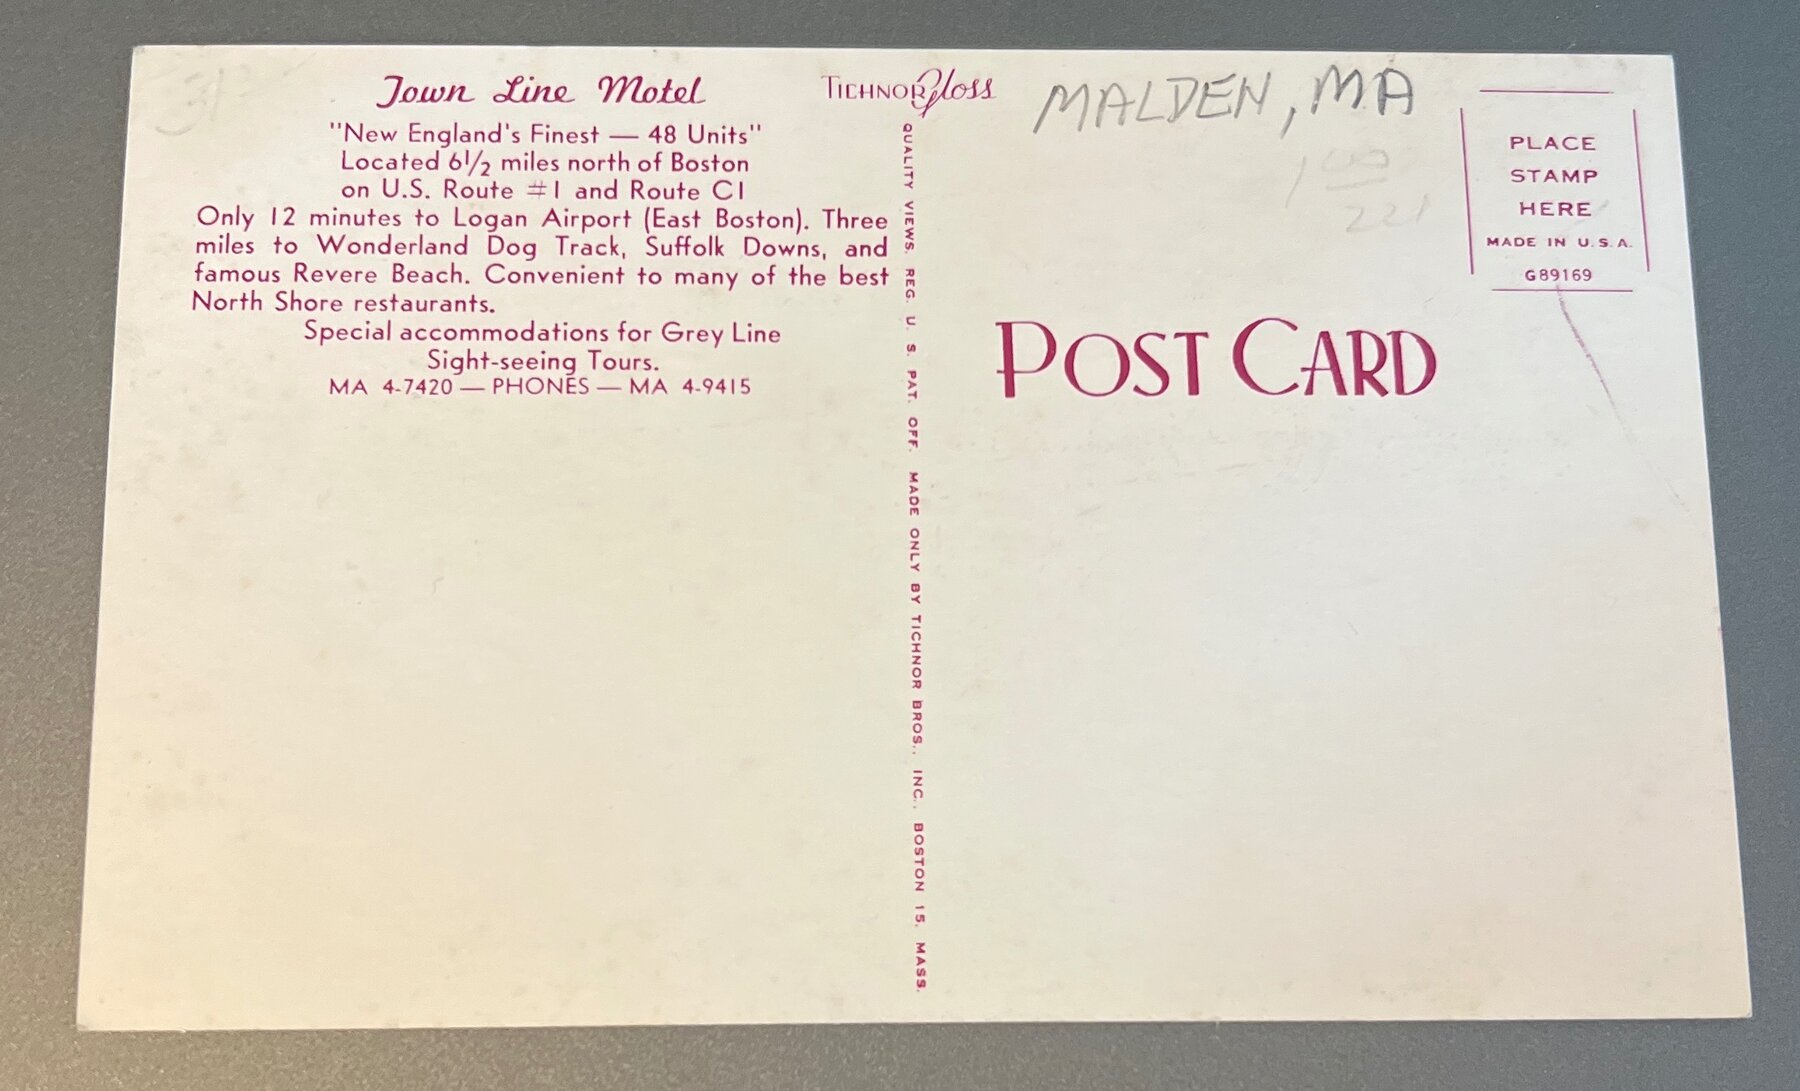 Town Line Motel
"New England's Finest — 48 Units"
Located 6½ miles north of Boston
on U.S. Route #1 and Route C1
Only 12 minutes to Logan Airport (East Boston). Three
miles to Wonderland Dog Track, Suffolk Downs, and
famous Revere Beach. Convenient to many of the best
North Shore restaurants.
Special accommodations for Grey Line
Sight-seeing Tours.
MA 4-7420 — PHONES — MA 4-9415
TICHNOR Gloss
QUALITY VIEWS. REG. U. S. PAT. OFF. MADE ONLY BY TICHNOR BROS., INC., BOSTON 15, MASS.
MALDEN, MA
1 00
221
PLACE
STAMP
HERE
MADE IN U.S.A.
G89169
POST CARD